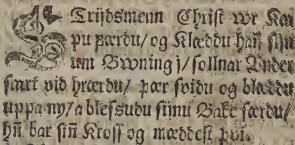 STrijdsmenn Christ wr Kaa
pu færdu/ og Klæddu han̄ sijn
um Bwning j/ sollnar Under
særk vid hrærdu/ þær svidu og blæddu
uppa ny/ a blessudu sijnu Bake særdu/
hn̄ bar sin̄ Kross og mæddest þvi.